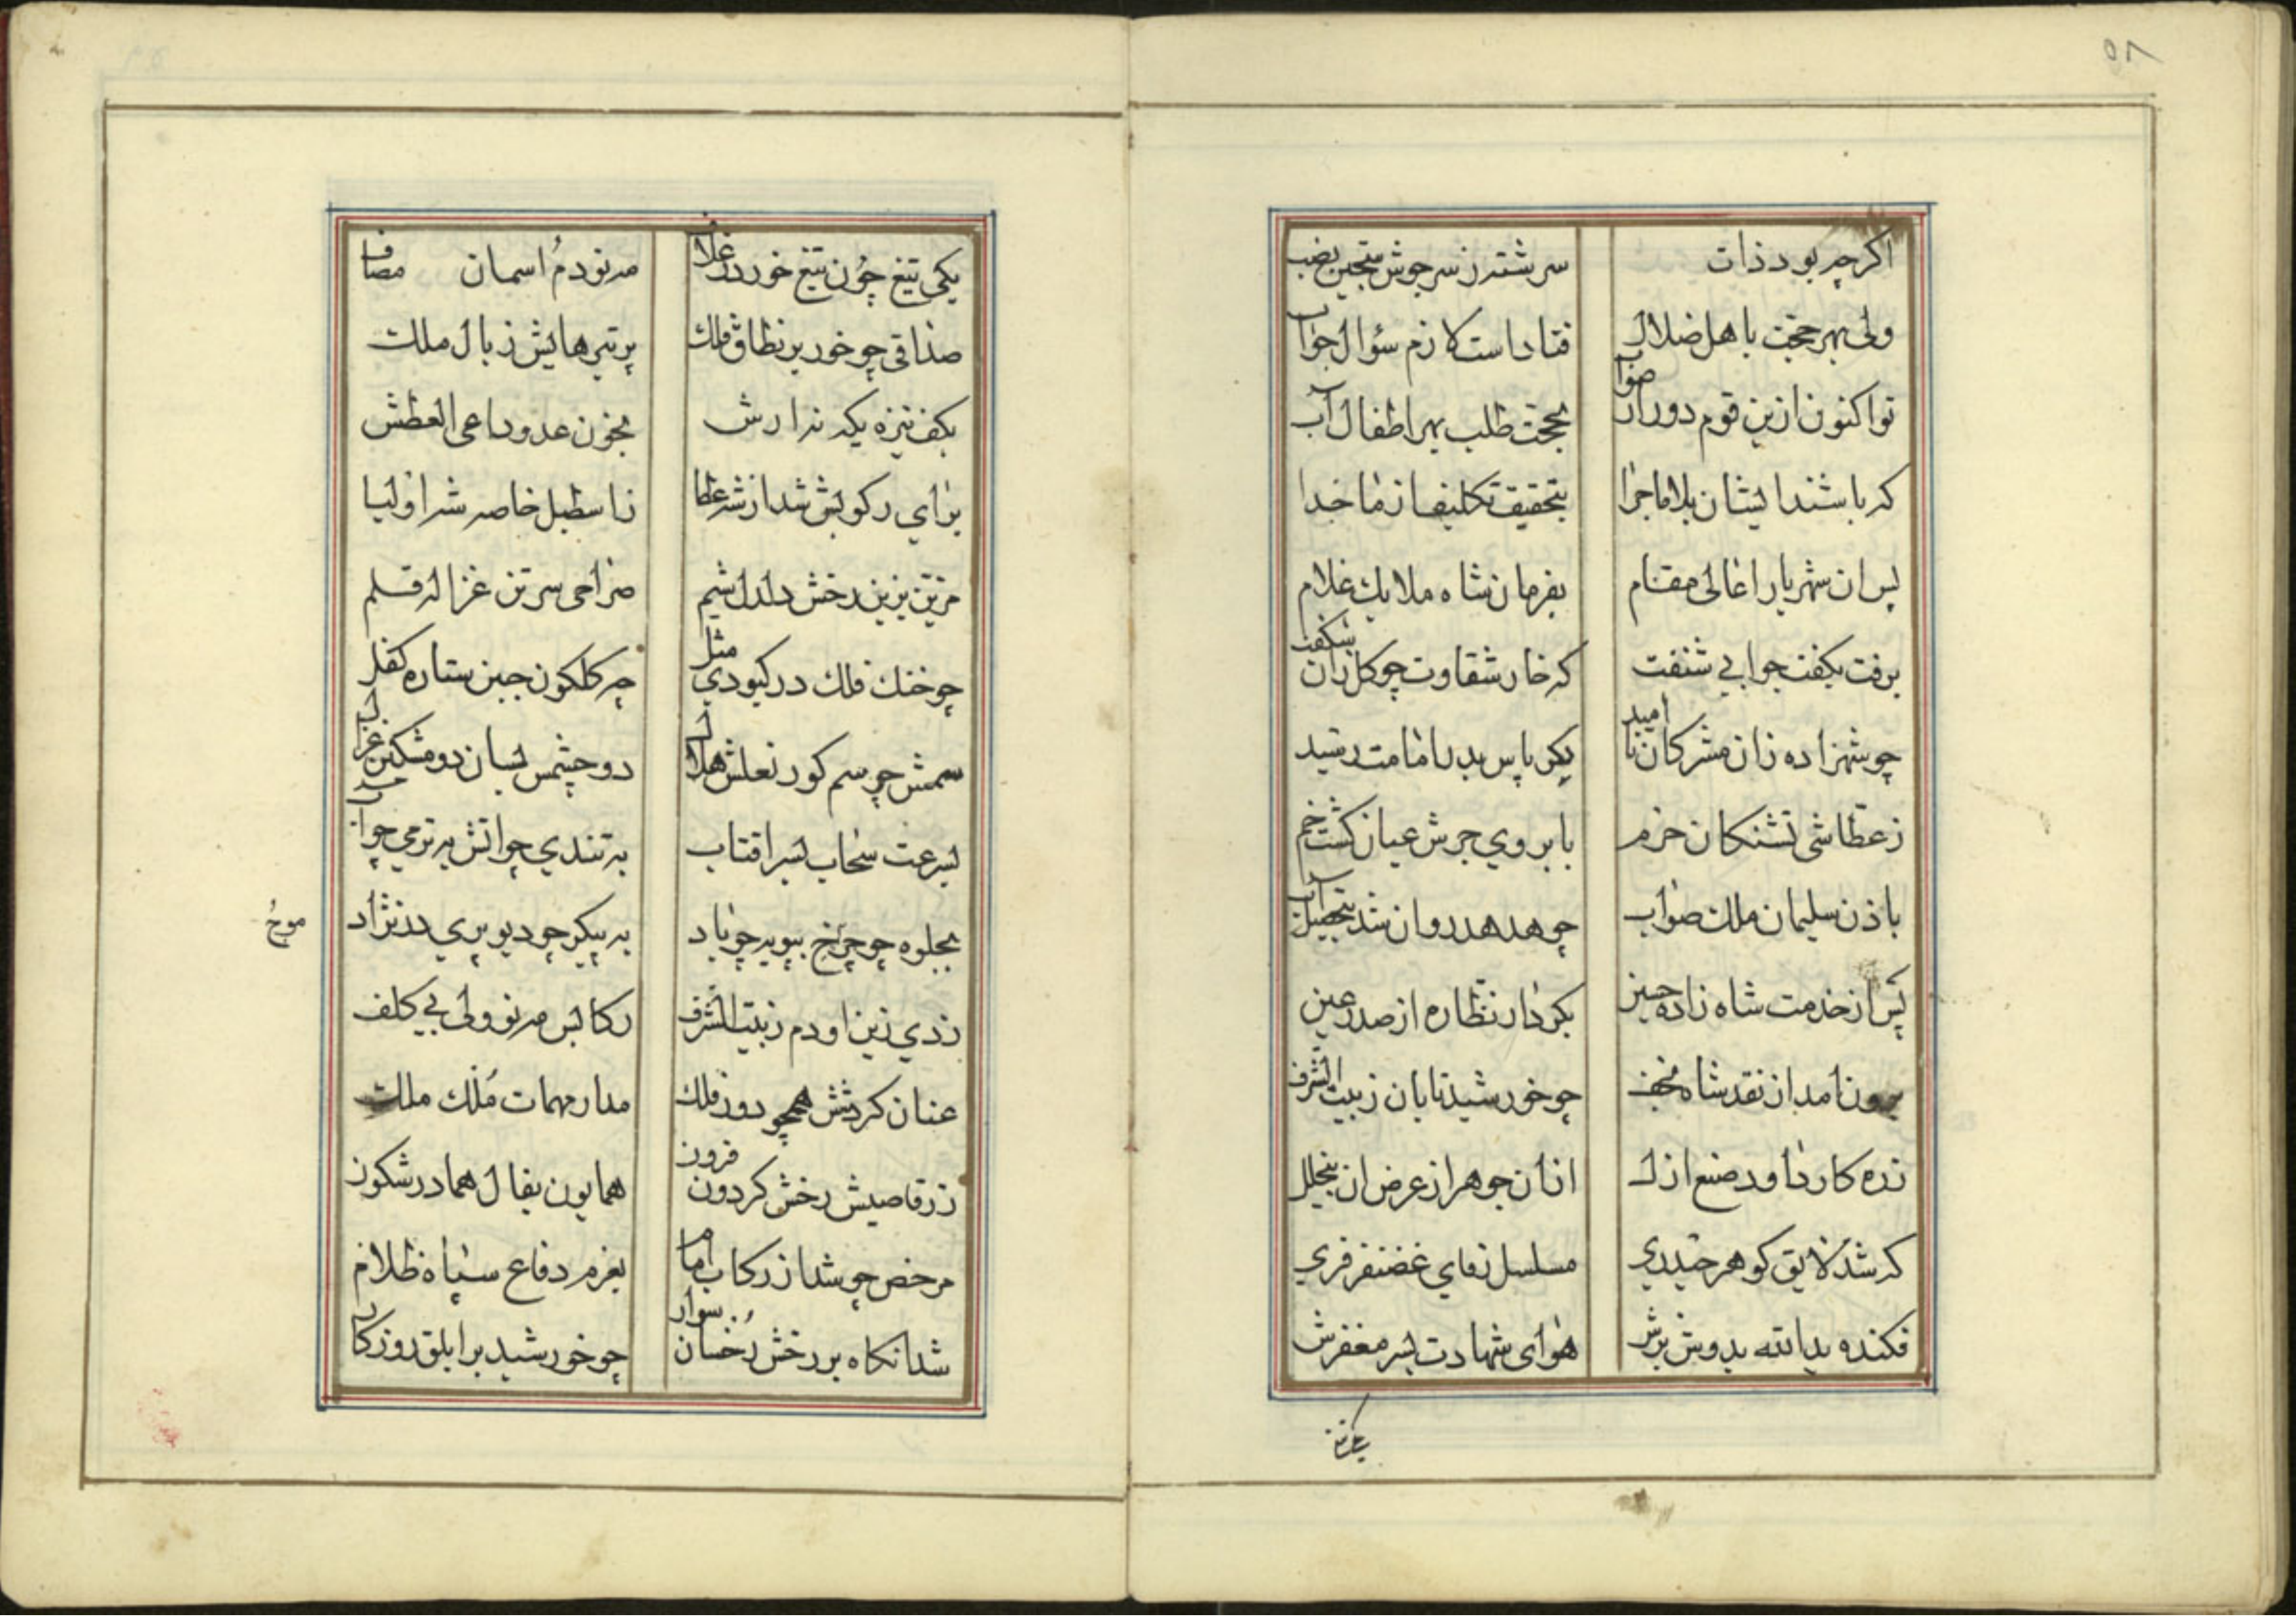 ۵۷
اکرچه بود ذات سرشته ز سرجوش
ولی بهر حجت باهل ضلال فتاداست لازم سؤال جواب
تو اکنون ازین قوم دور از صواب بحجت طلب بهر اطفال آب
که باشند ایشان بلا ماجرا بتحقیق تکلیف از ما جدا
پس ان شهریار اعالی مقام بفرمان شاه ملایک غلام
برفت بکفت جوابی شنفت که خار شقاوت چو کل زان شکفت
چو شهزاده زان مشرکان نا امید یکی پاس بدر امامت رسید
ز عطاشی تشنکان حرم بابروی جرش عیان کشت خم
باذن سلیمان ملک صواب چو هدهد روان شد بتحصیل آب
پس از خدمت شاه زاده حسین بکردار نظاره از صدر عین
برون امد از نقد شاه نجف چو خورشید تابان ز بیت الشرف
زره کار داود صنع ازل ازان جوهر از عرض ان
که شد لایق کوهر حیدری مسلسل غضنفر فری
فکنده ید الله بدوش برش هوای شهادت بسر مغفرش
یکی تیغ چون تیغ خور در غلاف مه نو دم اسمان مصاف
صداقی چو خور بر نطاق فلک پر تیرهایش ز بال ملک
بکف نیزه یکه ندارش بخون عدو داعی العطش
برای رکوبش شد از شه عطا ز اسطبل خاصه شه اولیا
مزین بزین رخش دلدل شیم صراحی سرین غزاله قلم
چو خنک فلک در کبودی مثل چه کلکون جبین ستاره کفل
سمش چو سم کور نعلش هلال دو چشمش بسان دو مشکین غزال
بسرعت سحاب بسر افتاب به تندی چو اتش به نرمی چو آب
بجلوه چو چرخ بپویه چو باد به پیکر چو دیو پری در نژاد
موخ
زدی زین او دم ز بیت الشرف رکابش مه نو ولی بی کلف
عنان کردشش همچو دور فلک مدار مهمات ملک ملک
ز رقاصیش رخش کردون فزون همایون بفال هما در شکون
مرخص چو شد از رکاب امام بعزم دفاع سپاه ظلام
شد انکاه بر رخش رخسان سوار چو خورشید بر ابلق روزکار